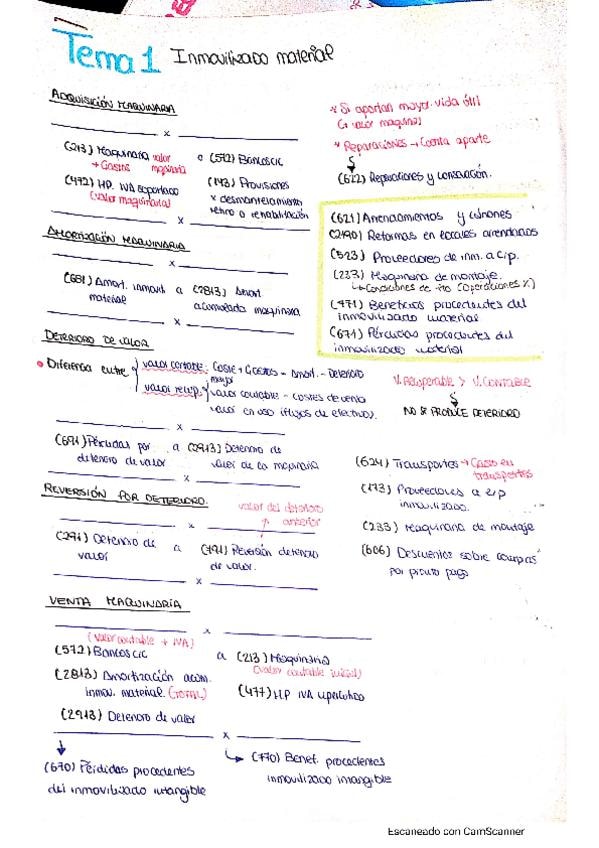 Tema 1 Inmovilizado material
ADQUISICIÓN MAQUINARIA
x
(213) Maquinaria valor
+ Gastos maquinaria
a (572) Bancos c/c
(472) HP. IVA soportado
(valor maquinaria)
(143) Provisiones
x desmantelamiento
retiro o rehabilitación
x
* Si aportan mayor vida útil
(+ valor maquina)
* Reparaciones → Cuenta aparte
(622) Reparaciones y conservación.
(621) Arrendamientos y cánones
(2190) Reformas en locales arrendados
(523) Proveedores de inm. a c/p.
(237) Maquinaria de montaje.
(771) Beneficios procedentes del
inmovilizado material
(671) Pérdidas procedentes del
inmovilizado material
AMORTIZACIÓN MAQUINARIA
x
(681) Amort. inmovil. a (2813) Amort
material acumulada maquinaria
x
DETERIORO DE VALOR
• Diferencia entre
valor contable: Coste + Gastos - Amort. - Deterioro
mayor
valor recup. valor contable - costes de venta
valor en uso (flujos de efectivo).
V. Recuperable > V. Contable
NO SE PRODUCE DETERIORO
x
(691) Pérdidas por a (2913) Deterioro de
deterioro de valor valor de la maquinaria
x
(624) Transportes → Gasto en
transportes
(173) Proveedores a l/p
inmovilizado.
(233) Maquinaria de montaje
(606) Descuentos sobre compras
por pronto pago
REVERSIÓN POR DETERIORO.
valor del deterioro
↑ anterior
x
(291) Deterioro de a (791) Reversión deterioro
valor de valor.
x
VENTA MAQUINARIA
x
(valor contable + IVA)
(572) Bancos c/c a (213) Maquinaria
(valor contable inicial)
(2813) Amortización acum.
inmov. material (TOTAL)
(477) HP IVA repercutido
(2913) Deterioro de valor
x
(670) Pérdidas procedentes
del inmovilizado intangible
(770) Benef. procedentes
inmovilizado intangible
Escaneado con CamScanner